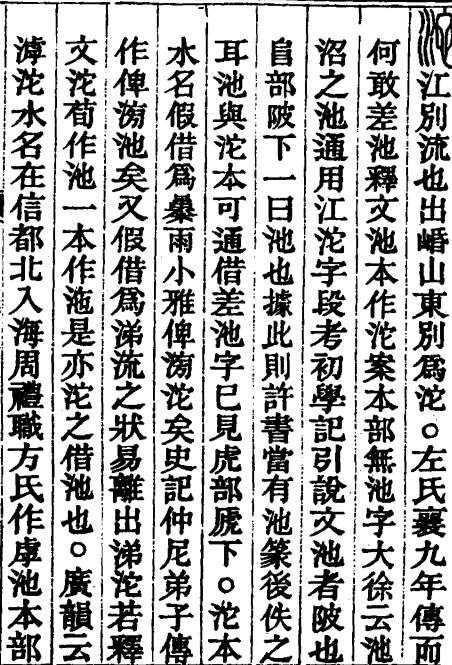 沱江別流也出㟭山東別爲沱○左氏襄九年傳而
何敢差池釋文池本作沱案本部無池字大徐云池
沼之池通用江沱字段考初學記引說文池者陂也
𨸏部陂下一曰池也據此則許書當有池篆後佚之
耳池與沱本可通借差池字已見虎部虒下○沱本
水名假借爲㬥雨小雅俾滂沱矣史記仲尼弟子傳
作俾滂池矣又假借爲涕流之狀易離出涕沱若釋
文沱荀作池一本作沲是亦沱之借池也○廣韻云
滹沱水名在信都北入海周禮職方氏作虖池本部